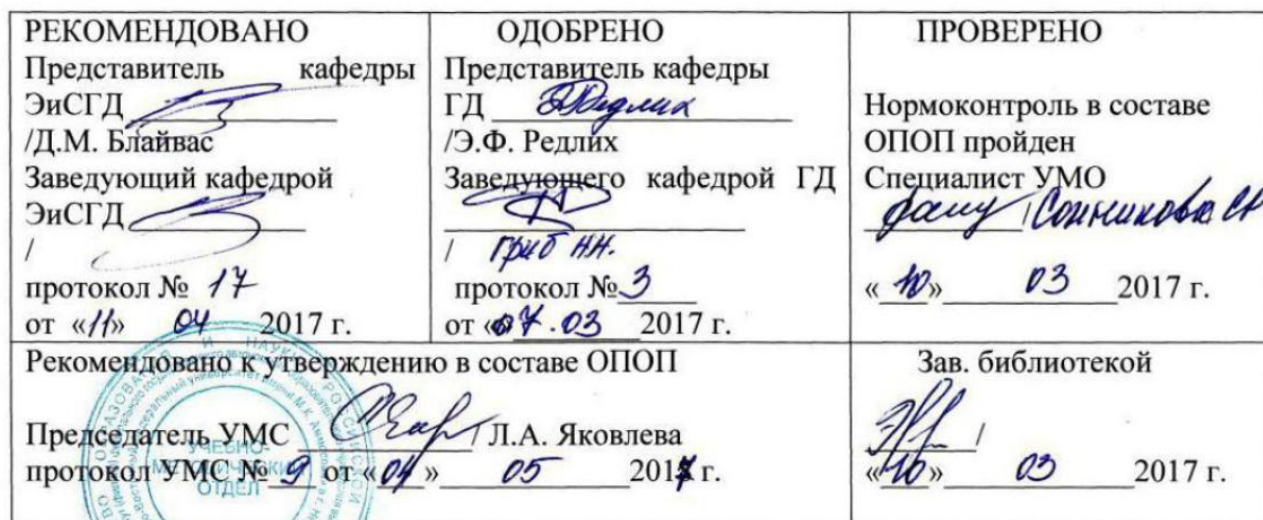 РЕКОМЕНДОВАНО
Представитель кафедры
ЭиСГД
/Д.М. Блайвас
Заведующий кафедрой
ЭиСГД
/
протокол № 17
от «11» 04 2017 г.
ОДОБРЕНО
Представитель кафедры
ГД
/Э.Ф. Редлих
Заведующего кафедрой ГД
/ Гриб Н.Н.
протокол № 3
от «07.03 2017 г.
ПРОВЕРЕНО
Нормоконтроль в составе
ОПОП пройден
Специалист УМО
/
«10» 03 2017 г.
Рекомендовано к утверждению в составе ОПОП
Председатель УМС / Л.А. Яковлева
протокол УМС № 9 от «04» 05 2017 г.
Зав. библиотекой
/
«10» 03 2017 г.
УЧЕБНО-
МЕТОДИЧЕСКИЙ
ОТДЕЛ